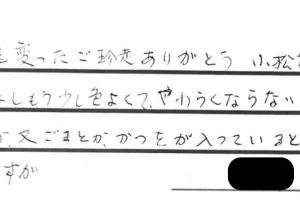 変ったご珍走ありがとう 小松
しもう少し色よくて、やわらくならない
、又ごまとか、かつをが入っていると
すが